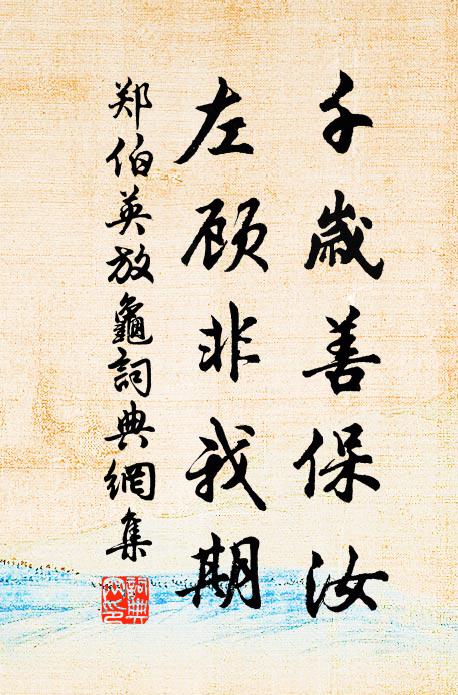 千歲善保汝
左顾非我期
郑伯英放龜詞典網集